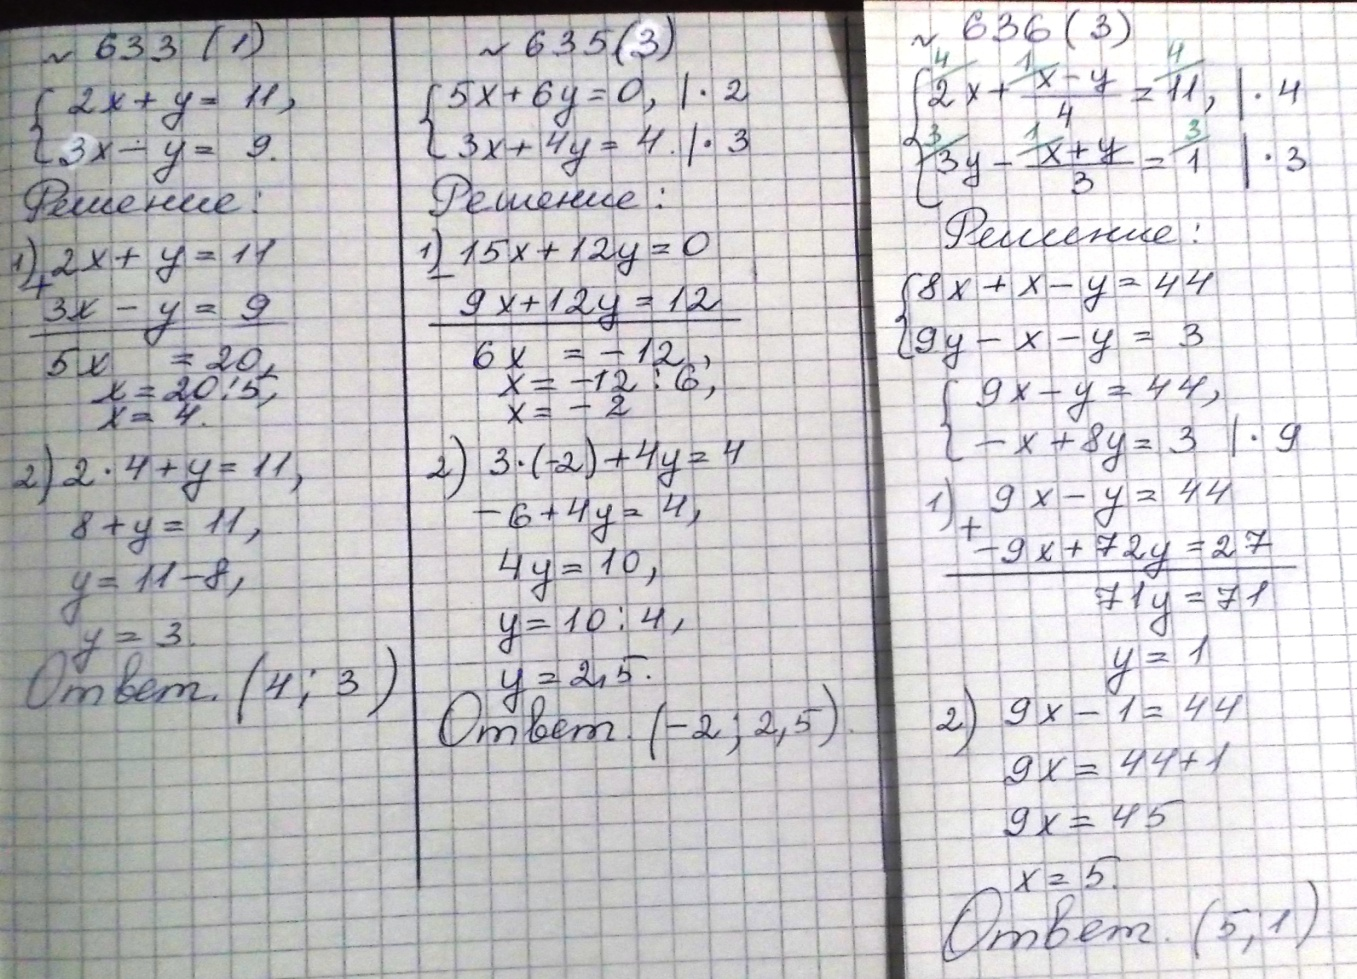 ~ 633 (1)
{ 2x + y = 11,
3x - y = 9.
Решение:
1) 2x + y = 11
+
3x - y = 9
5x = 20,
x = 20 : 5,
x = 4.
2) 2 · 4 + y = 11,
8 + y = 11,
y = 11 - 8,
y = 3.
Ответ. (4; 3)
~ 635(3)
{ 5x + 6y = 0, | · 2
3x + 4y = 4. | · 3
Решение:
1) 15x + 12y = 0
-
9x + 12y = 12
6x = -12,
x = -12 : 6,
x = -2
2) 3·(-2) + 4y = 4
-6 + 4y = 4,
4y = 10,
y = 10 : 4,
y = 2,5.
Ответ. (-2; 2,5).
~ 636 (3)
4 1 4
{ 2x + (x - y)/4 = 11, | · 4
3 1 3
3y - (x + y)/3 = 1 | · 3
Решение:
{ 8x + x - y = 44
9y - x - y = 3
{ 9x - y = 44,
-x + 8y = 3 | · 9
1) 9x - y = 44
+
-9x + 72y = 27
71y = 71
y = 1
2) 9x - 1 = 44
9x = 44 + 1
9x = 45
x = 5.
Ответ. (5, 1)